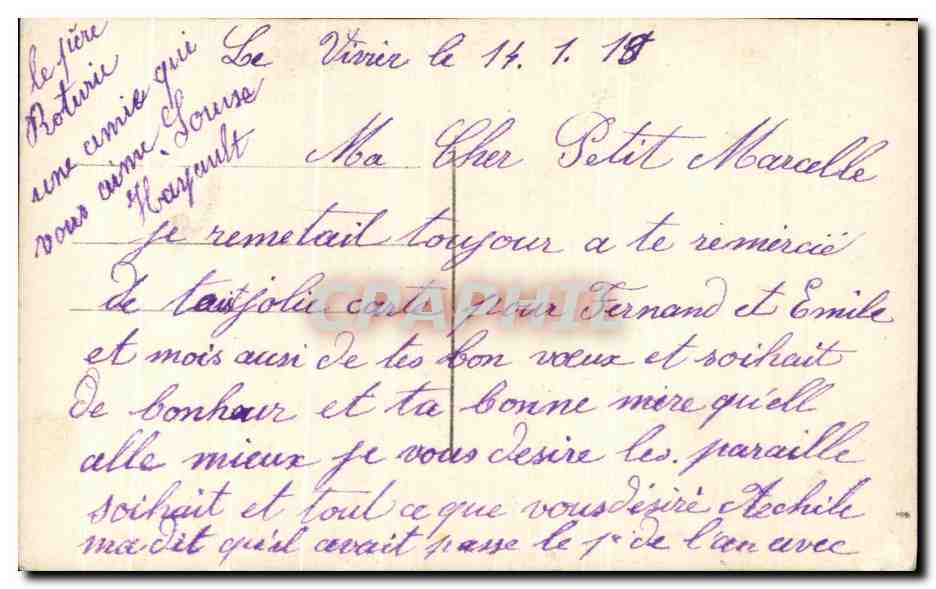 Le Vivier le 14. 1. 18
Ma Cher Petit Marcelle
je remetait toujour a te remercié
de jolie carte pour Fernand et Emile
et mois ausi de tes bon vœux et soihait
de bonheur et ta bonne mère qu'ell
alle mieux je vous desire les paraille
soihait et tout ce que vous désiré Achile
ma dit qu'il avait passe le 1er de l'an avec
le père
Roturie
une amie qui
vous aime. Louise
Hayault
CPAPHIL